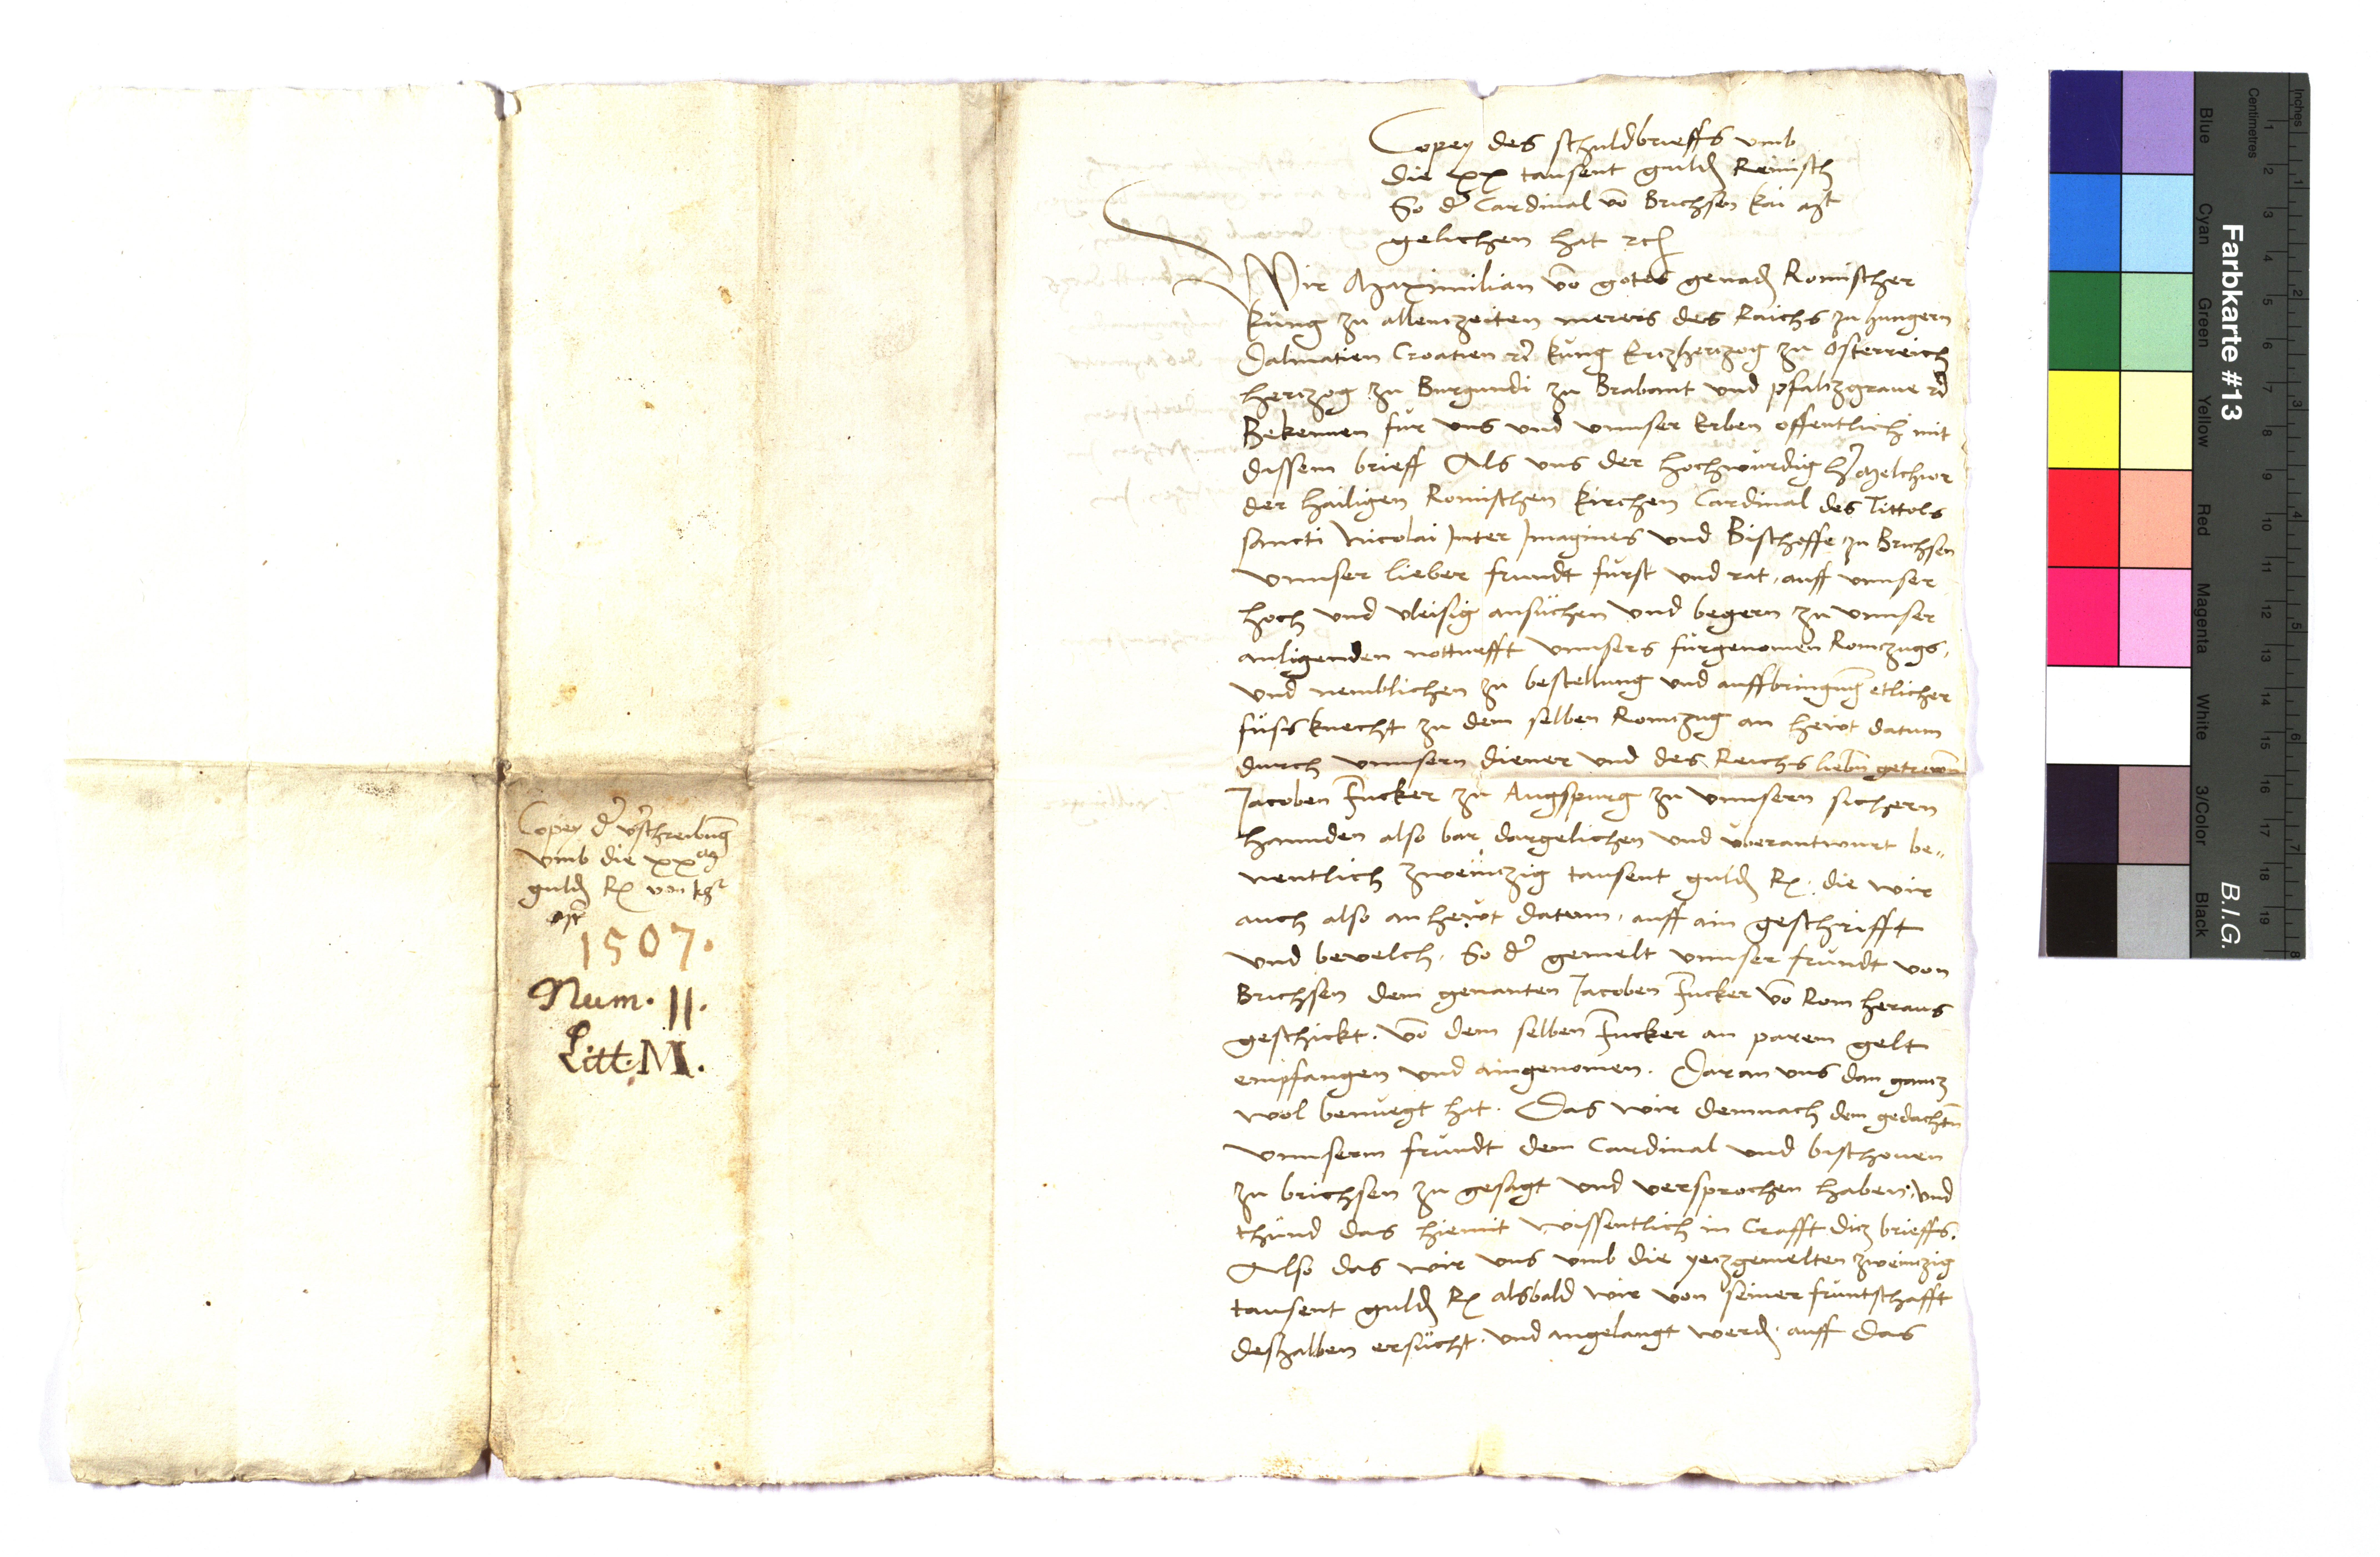 Copey des schuldbrieffs umb
die xx tausent guldn Reinisch
So dr Cardinal vo Brichsen kai mjt
gelichen hat rc
Wir Maximilian vo gotes genadn Romischer
kung zu allenzeiten merers des Raichs zu hungern
Dalmatien Croatien rc kung Ertzhertzog zu Osterreich
hertzog zu Burgundi zu Brabannt und pfaltzgraue rc
Bekennen fur uns und unnser Erben offentlich mit
dissem brieff Als uns der hochwurdig hr Melchior
der hailigen Romischen kirchen Cardinal des Tittols
sancti Nicolai Inter Imagines und Bischoffe zu Brichsen
unnser lieber frundt furst und rat, auff unnser
hoch und vleisig ansuchen und begern zu unnser
anligenden notturfft unnsers furgenomen Romzugs,
und nemblichen zu bestellung und auffbringung etlicher
fuss knecht zu dem selben Romzug an hewt datum
durch unnsern diener und des Reichs liebn getrewn
Jacoben Fucker zu Augspurg zu unnsern sichern
hannden also bar dargelichen und uberantwurt be„
nentlich zweintzig tausent guldn R. die wir
auch also an hewt datum, auff ain geschrifft
und bevelch. So dr gemelt unnser frundt von
Brichsen dem genanten Jacoben Fucker vo Rom heraus
geschickt. vo dem selben Fucker an parem gelt
empfangen und aingenomen. Daran uns dan gantz
wol benuegt hat. Das wir demnach dem gedachtn
unnserm frundt dem Cardinal und bischouen
zu brichsen zu gesagt und versprochen haben, und
thund das hiemit wissentlich in Crafft ditz brieffs.
Also das wir uns umb die yetzgemelten zweintzig
tausent guldn R alsbald wir von seiner fruntschafft
deshalben ersucht. und angelangt werdn. auff das
Copey dr vschreibung
umb die xx m
guldn R von
1507.
Num. 11.
Litt: M.
Farbkarte #13
B.I.G.
Inches
Centimetres
1 2 3 4 5 6 7 8
1 2 3 4 5 6 7 8 9 10 11 12 13 14 15 16 17 18 19
Blue
Cyan
Green
Yellow
Red
Magenta
White
3/Color
Black